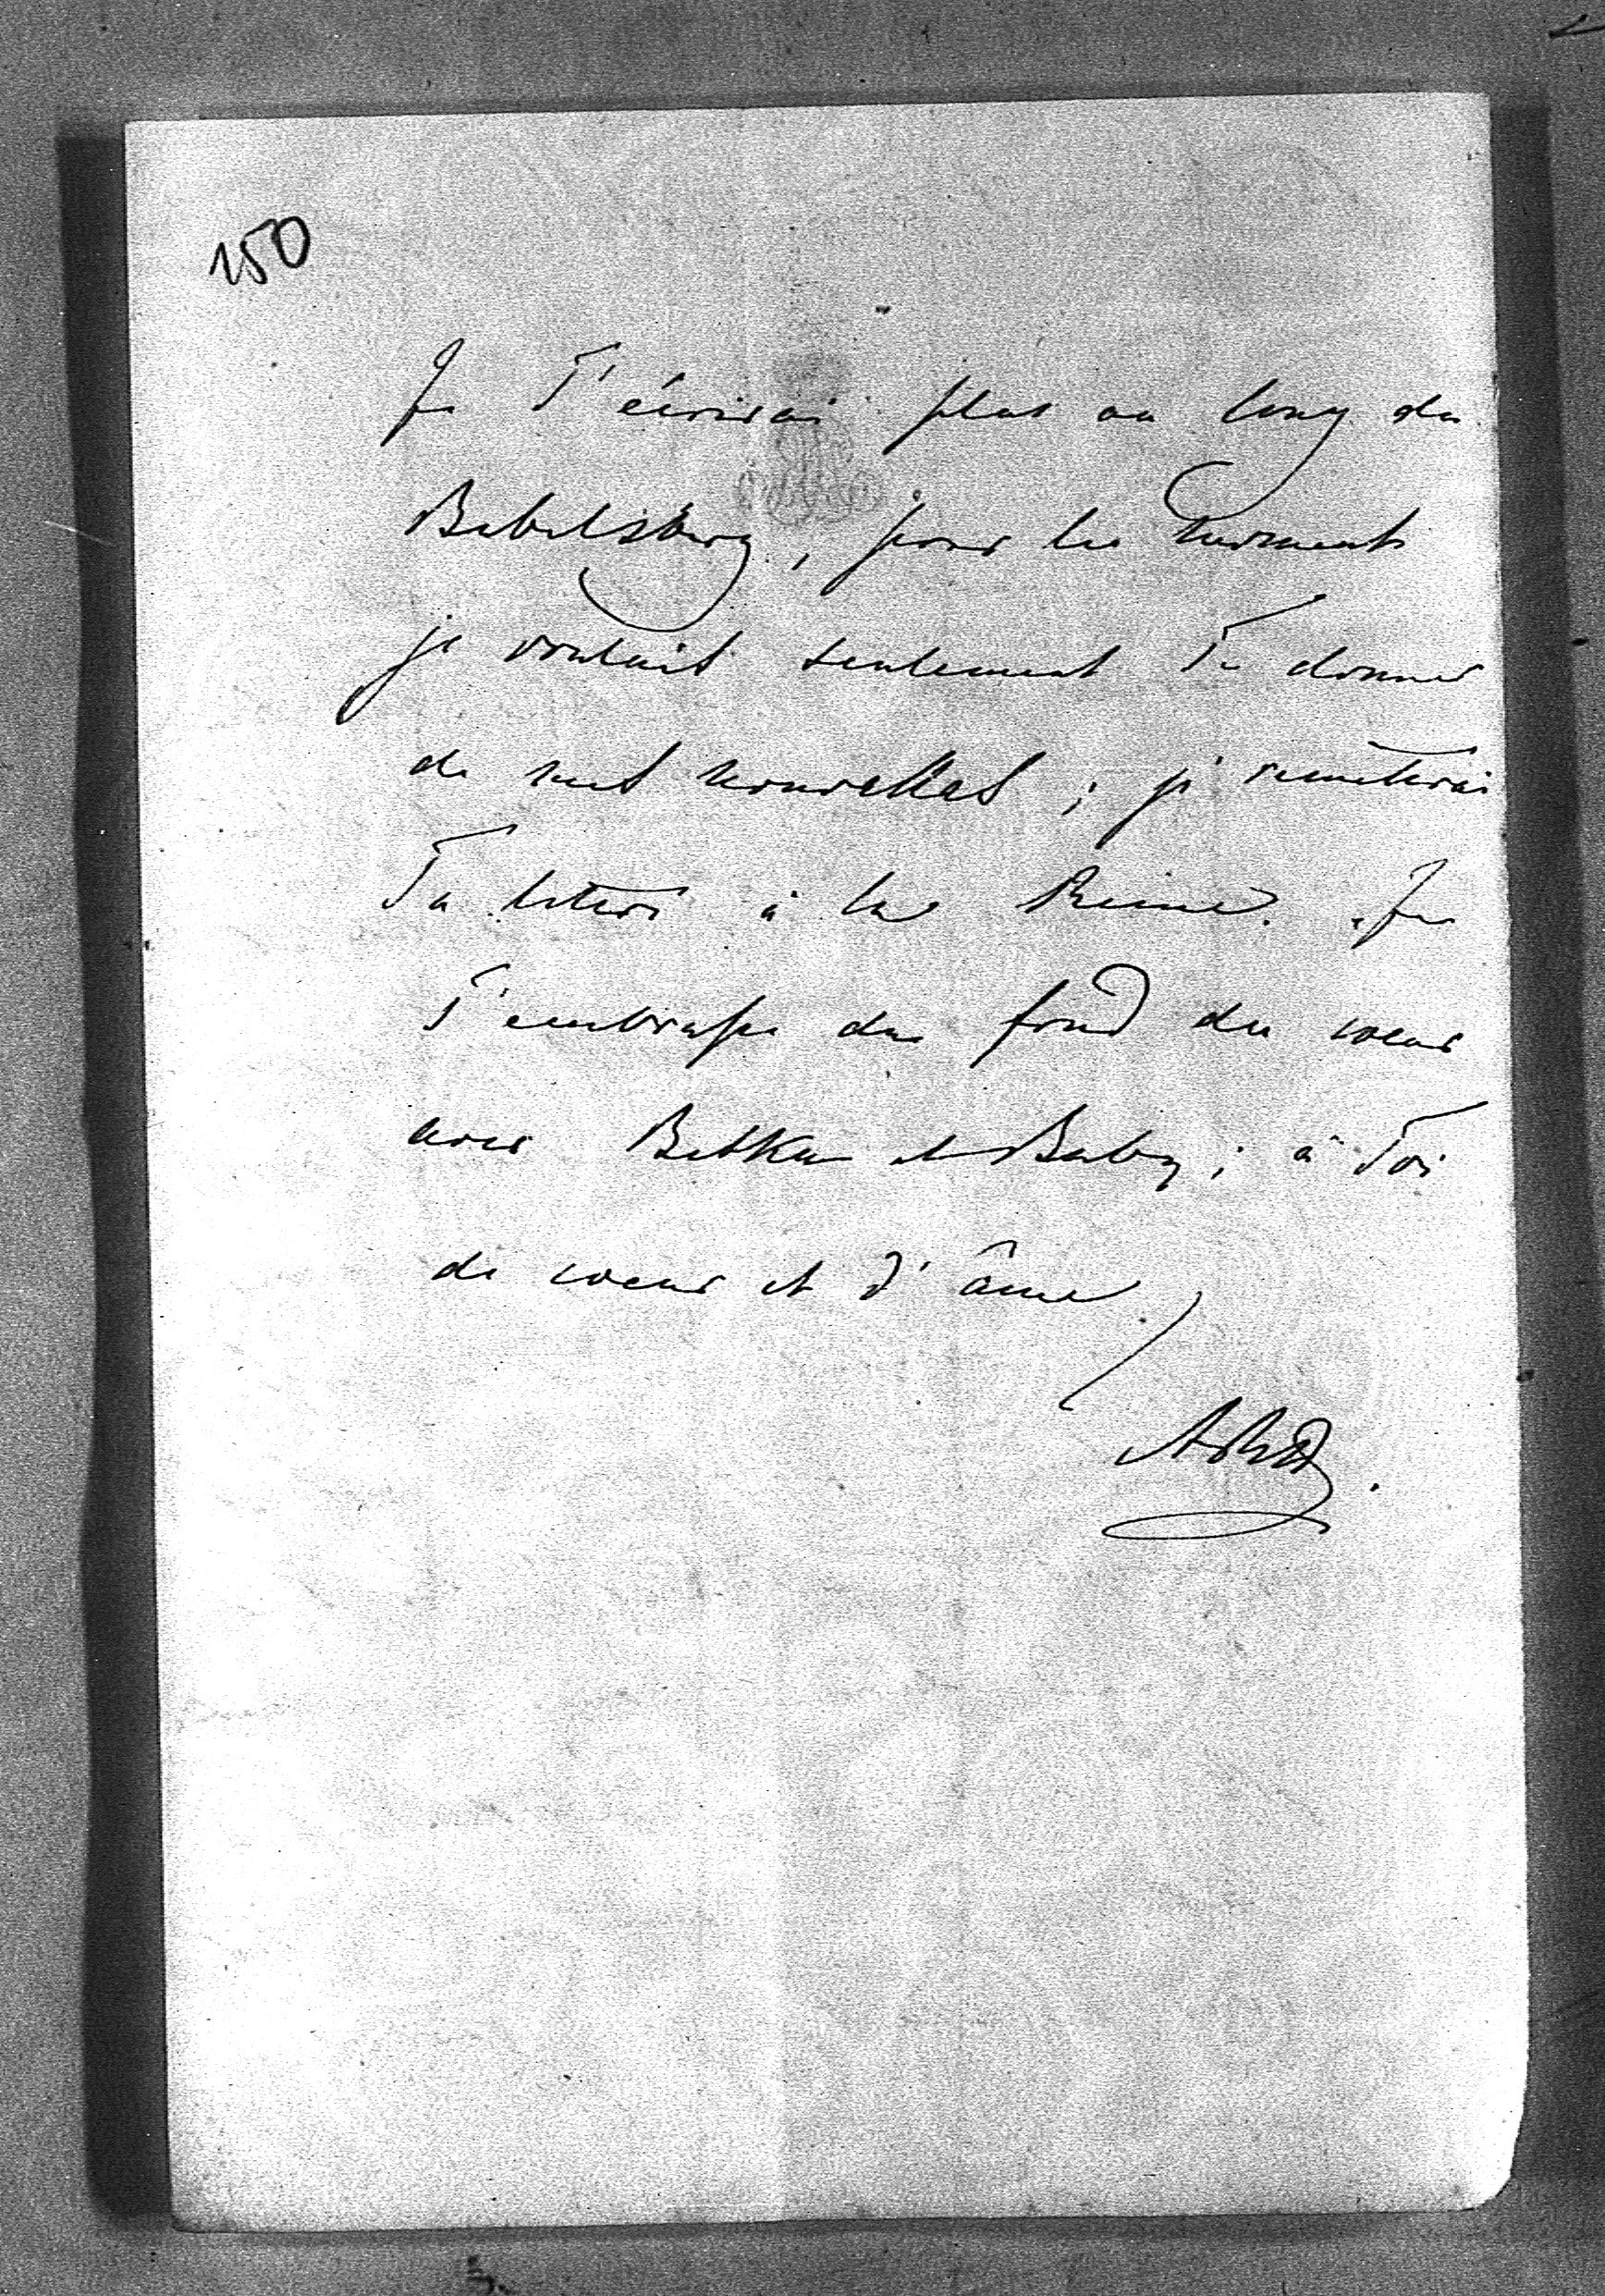 150
Je T'écrirai plus au long de
Babelsberg, pour le moment
je voulais seulement Te donner
de mes nouvelles ; je remeterai
Ta lettre à la Reine. Je
T'embrasse du fond du coeur
avec Betka et Baby ; à Toi
de coeur et d'âme